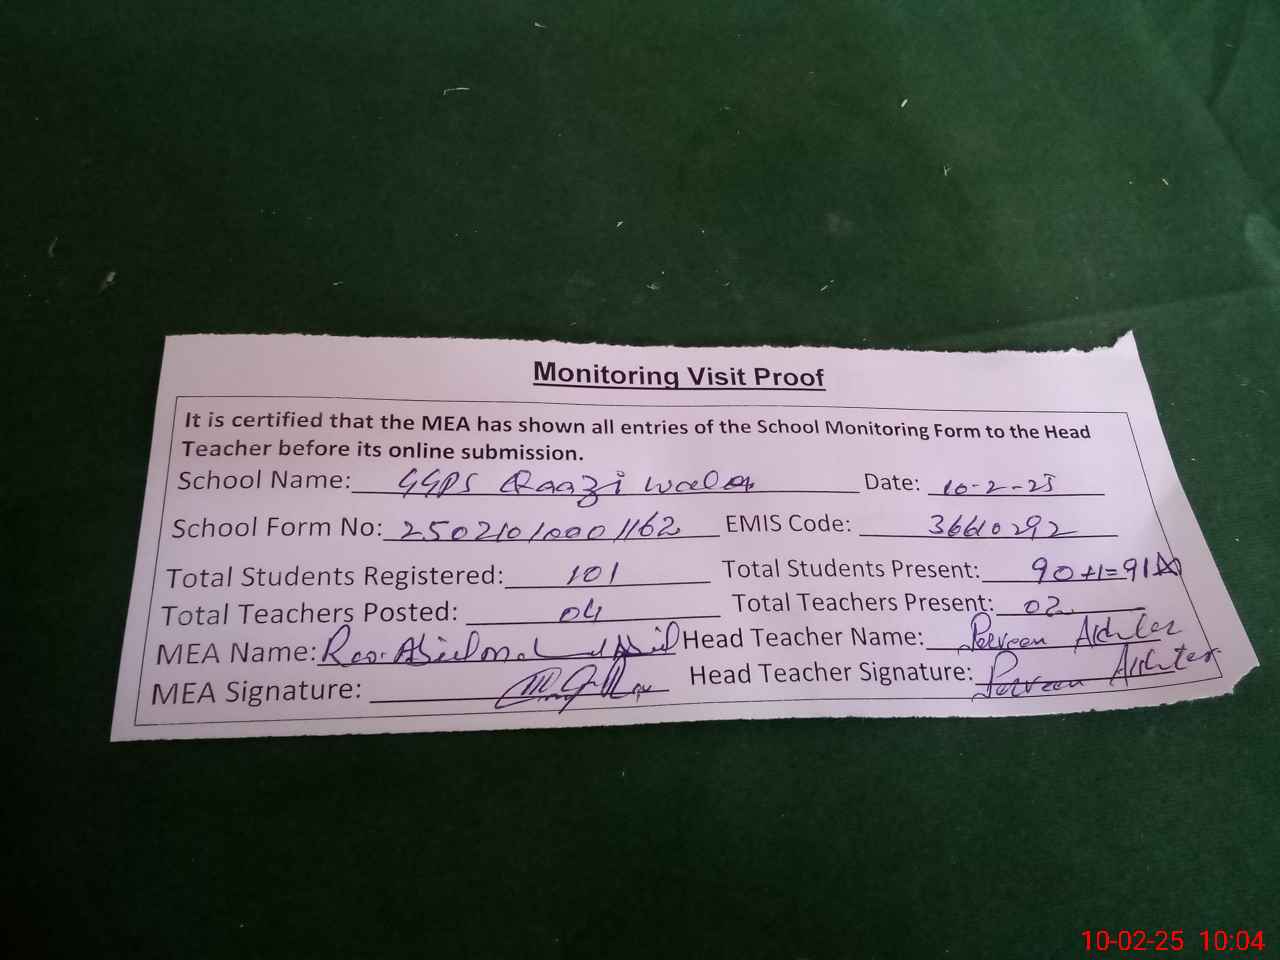 Monitoring Visit Proof
It is certified that the MEA has shown all entries of the School Monitoring Form to the Head
Teacher before its online submission.
School Name: GGPS Qaazi wala Date: 10-2-25
School Form No: 250210100001162 EMIS Code: 36610292
Total Students Registered: 101 Total Students Present: 90+1=91
Total Teachers Posted: 04 Total Teachers Present: 02
MEA Name: Rao Head Teacher Name: Perveen Akhter
MEA Signature: Head Teacher Signature: Perveen Akhter
10-02-25 10:04